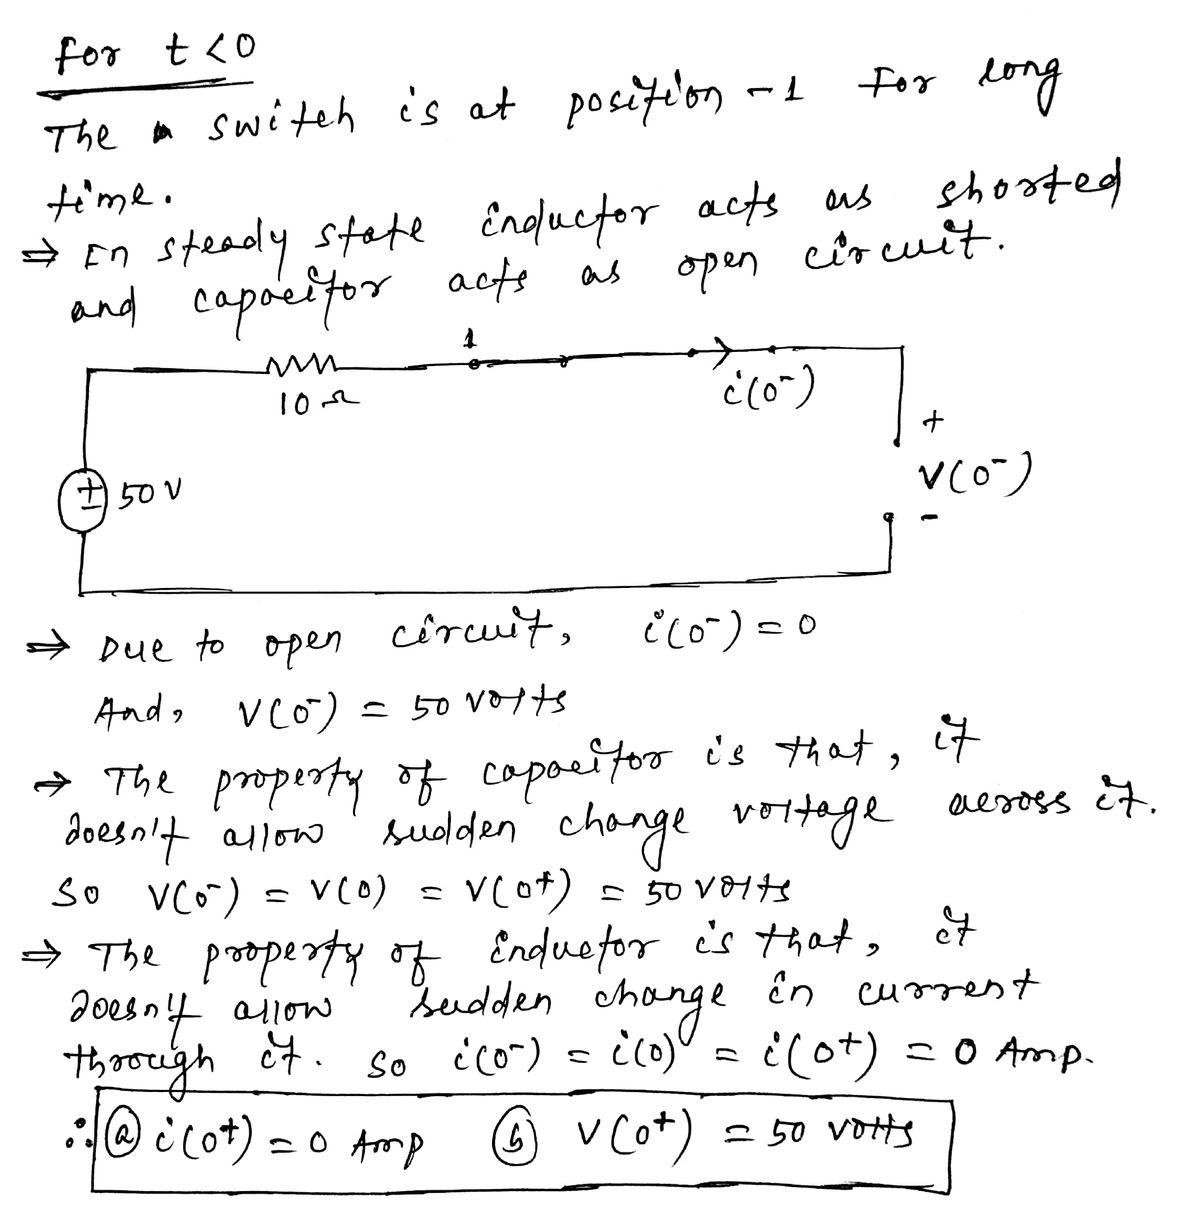 for t < 0
The switch is at position - 1 For long
time.
⇒ In steady state inductor acts as shorted
and capacitor acts as open circuit.
1
10 Ω
i(0⁻)
+
V(0⁻)
-
± 50 V
⇒ Due to open circuit, i(0⁻) = 0
And, V(0⁻) = 50 volts
⇒ The property of capacitor is that, it
doesn't allow sudden change voltage across it.
So V(0⁻) = V(0) = V(0⁺) = 50 volts
⇒ The property of inductor is that, it
doesn't allow sudden change in current
through it. So i(0⁻) = i(0) = i(0⁺) = 0 Amp.
∴ ⓐ i(0⁺) = 0 Amp ⓑ V(0⁺) = 50 volts